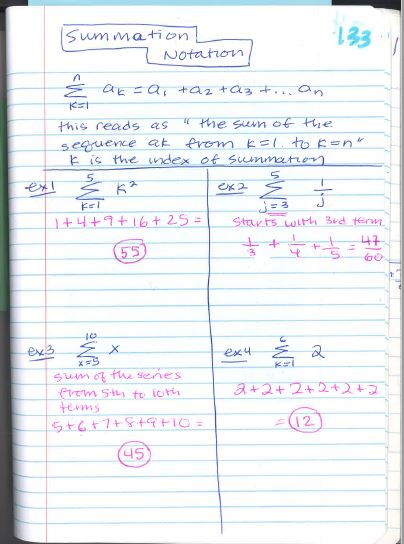 Summation
Notation
133
n
Σ ak = a1 + a2 + a3 + ... an
k=1
this reads as "the sum of the
sequence ak from k=1 to k=n"
k is the index of summation
ex1
5
Σ k²
k=1
1+4+9+16+25=
55
ex2
5
Σ 1/j
j=3
Starts with 3rd term
1/3 + 1/4 + 1/5 = 47/60
ex3
10
Σ x
x=5
sum of the series
from 5th to 10th
terms
5+6+7+8+9+10=
45
ex4
6
Σ 2
k=1
2+2+2+2+2+2
=12